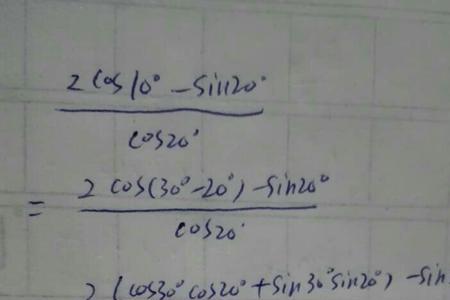 2 cos10° - sin20°
cos20°
= 2 cos(30°-20°) - sin20°
cos20°
2 (cos30° cos20° + sin30° sin20°) - sin